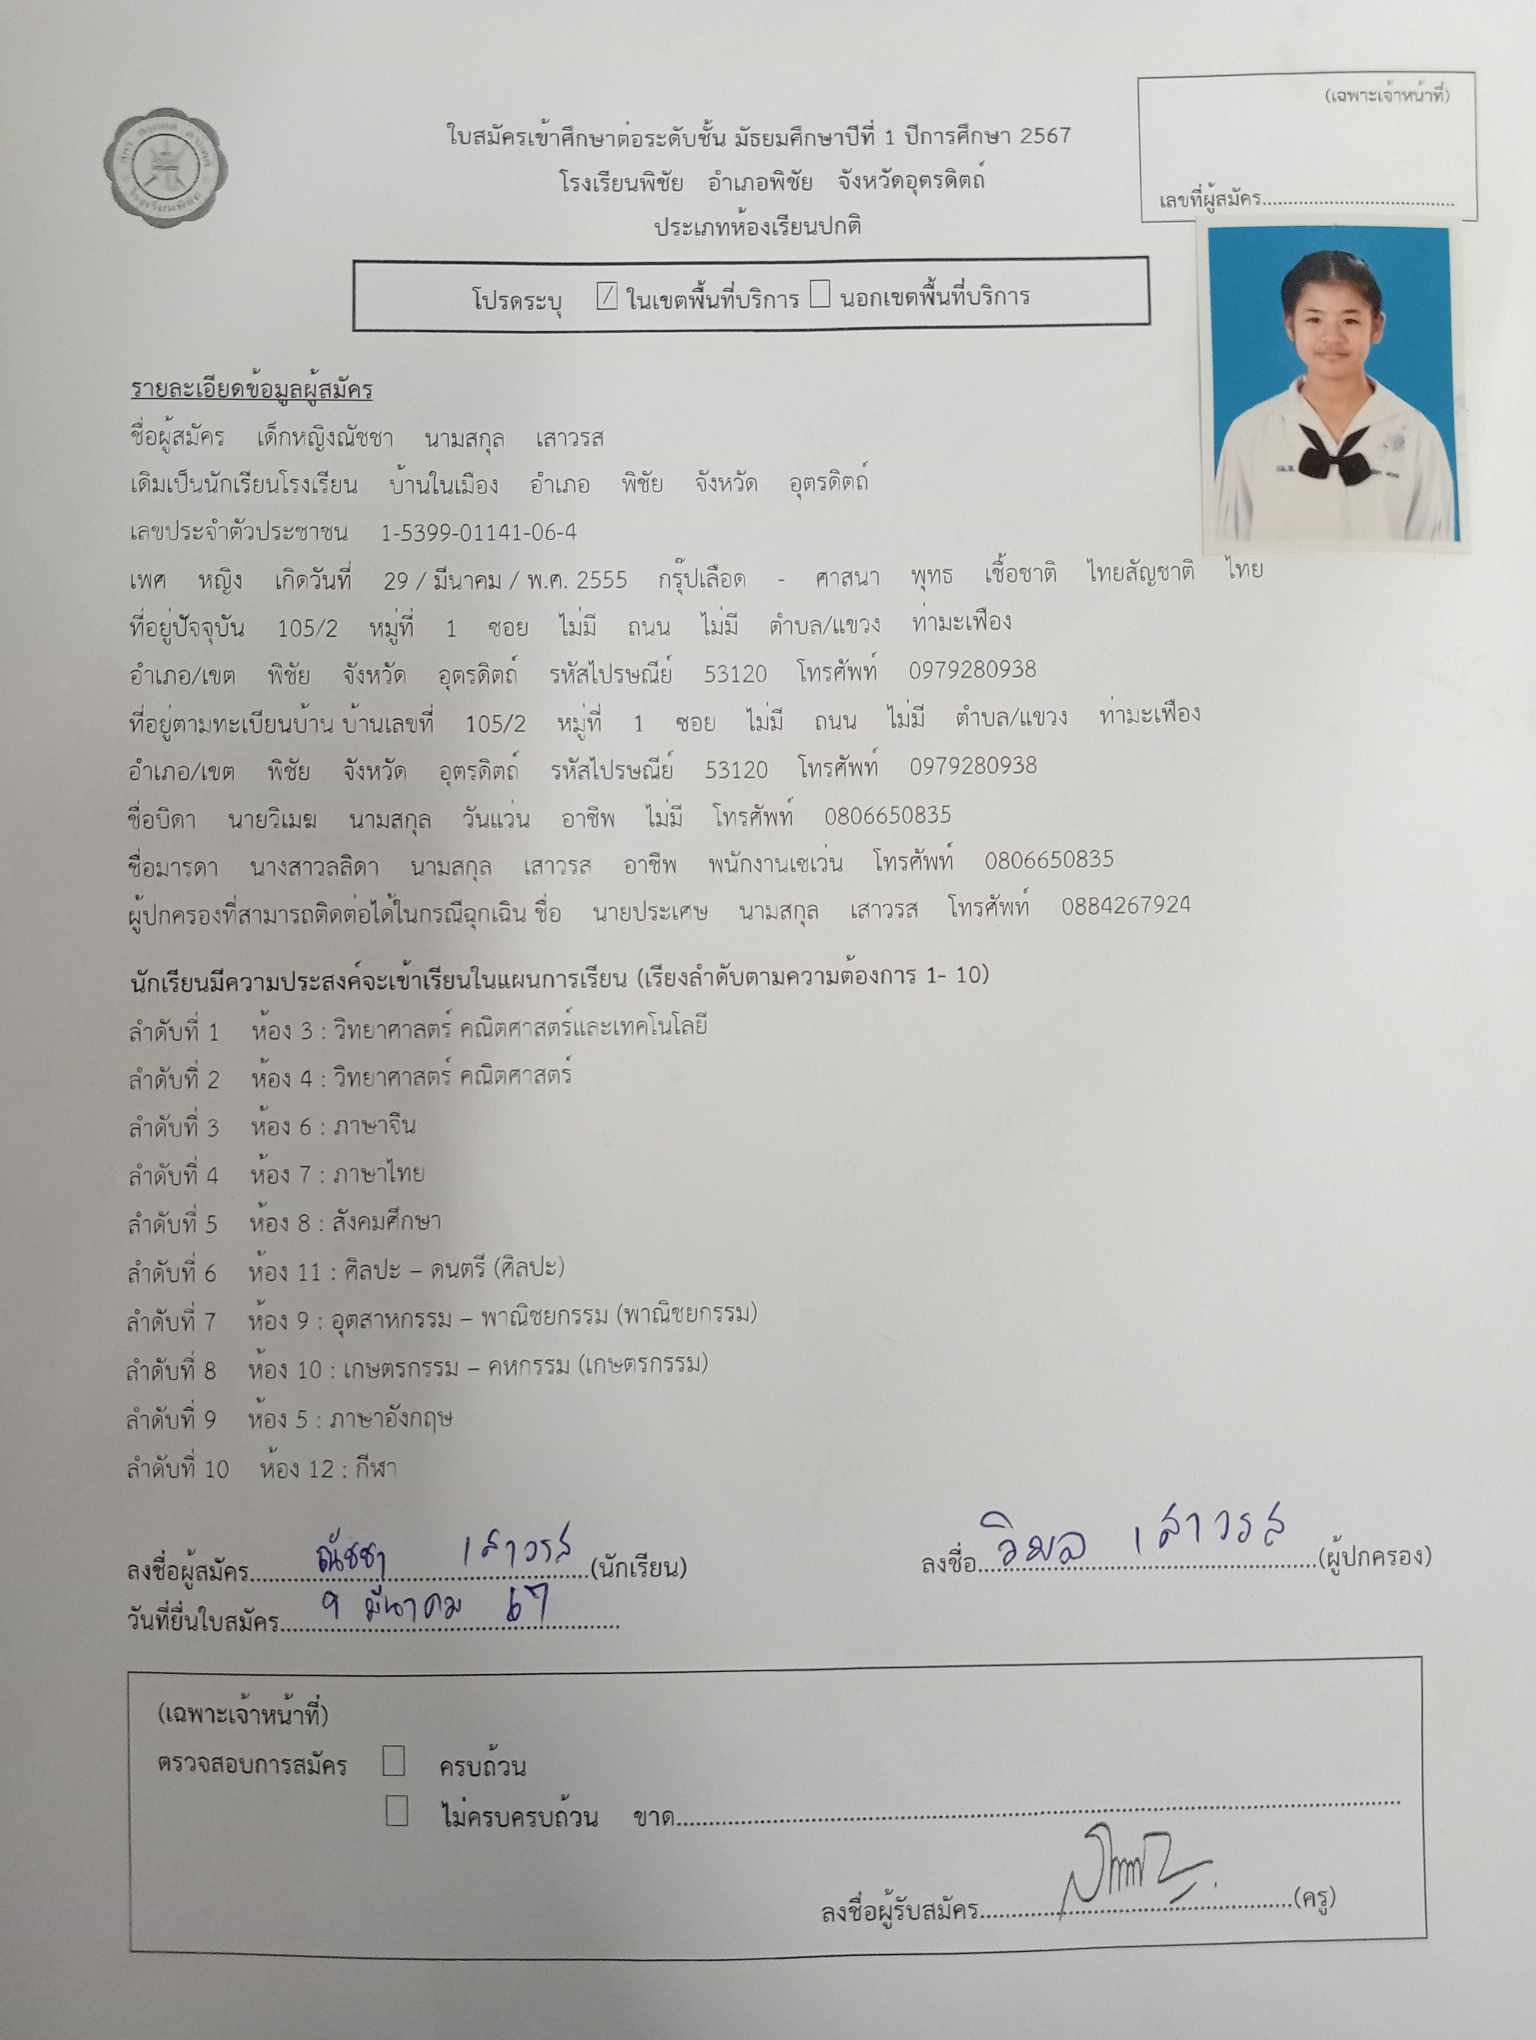 (เฉพาะเจ้าหน้าที่)
ใบสมัครเข้าศึกษาต่อระดับชั้น มัธยมศึกษาปีที่ 1 ปีการศึกษา 2567
โรงเรียนพิชัย อำเภอพิชัย จังหวัดอุตรดิตถ์
เลขที่ผู้สมัคร....................................
ประเภทห้องเรียนปกติ
โรงเรียนพิชัย
โปรดระบุ ☑ ในเขตพื้นที่บริการ ☐ นอกเขตพื้นที่บริการ
รายละเอียดข้อมูลผู้สมัคร
ชื่อผู้สมัคร เด็กหญิงณัชชา นามสกุล เสาวรส
เดิมเป็นนักเรียนโรงเรียน บ้านในเมือง อำเภอ พิชัย จังหวัด อุตรดิตถ์
เลขประจำตัวประชาชน 1-5399-01141-06-4
เพศ หญิง เกิดวันที่ 29 / มีนาคม / พ.ศ. 2555 กรุ๊ปเลือด - ศาสนา พุทธ เชื้อชาติ ไทยสัญชาติ ไทย
ที่อยู่ปัจจุบัน 105/2 หมู่ที่ 1 ซอย ไม่มี ถนน ไม่มี ตำบล/แขวง ท่ามะเฟือง
อำเภอ/เขต พิชัย จังหวัด อุตรดิตถ์ รหัสไปรษณีย์ 53120 โทรศัพท์ 0979280938
ที่อยู่ตามทะเบียนบ้าน บ้านเลขที่ 105/2 หมู่ที่ 1 ซอย ไม่มี ถนน ไม่มี ตำบล/แขวง ท่ามะเฟือง
อำเภอ/เขต พิชัย จังหวัด อุตรดิตถ์ รหัสไปรษณีย์ 53120 โทรศัพท์ 0979280938
ชื่อบิดา นายวิเมฆ นามสกุล วันแว่น อาชีพ ไม่มี โทรศัพท์ 0806650835
ชื่อมารดา นางสาวลลิดา นามสกุล เสาวรส อาชีพ พนักงานเซเว่น โทรศัพท์ 0806650835
ผู้ปกครองที่สามารถติดต่อได้ในกรณีฉุกเฉิน ชื่อ นายประเศษ นามสกุล เสาวรส โทรศัพท์ 0884267924
นักเรียนมีความประสงค์จะเข้าเรียนในแผนการเรียน (เรียงลำดับตามความต้องการ 1- 10)
ลำดับที่ 1 ห้อง 3 : วิทยาศาสตร์ คณิตศาสตร์และเทคโนโลยี
ลำดับที่ 2 ห้อง 4 : วิทยาศาสตร์ คณิตศาสตร์
ลำดับที่ 3 ห้อง 6 : ภาษาจีน
ลำดับที่ 4 ห้อง 7 : ภาษาไทย
ลำดับที่ 5 ห้อง 8 : สังคมศึกษา
ลำดับที่ 6 ห้อง 11 : ศิลปะ – ดนตรี (ศิลปะ)
ลำดับที่ 7 ห้อง 9 : อุตสาหกรรม – พาณิชยกรรม (พาณิชยกรรม)
ลำดับที่ 8 ห้อง 10 : เกษตรกรรม – คหกรรม (เกษตรกรรม)
ลำดับที่ 9 ห้อง 5 : ภาษาอังกฤษ
ลำดับที่ 10 ห้อง 12 : กีฬา
ลงชื่อผู้สมัคร ณัชชา เสาวรส (นักเรียน) ลงชื่อ วิมล เสาวรส (ผู้ปกครอง)
วันที่ยื่นใบสมัคร 9 มีนาคม 67
(เฉพาะเจ้าหน้าที่)
ตรวจสอบการสมัคร ☐ ครบถ้วน
☐ ไม่ครบครบถ้วน ขาด....................................
ลงชื่อผู้รับสมัคร....................................(ครู)